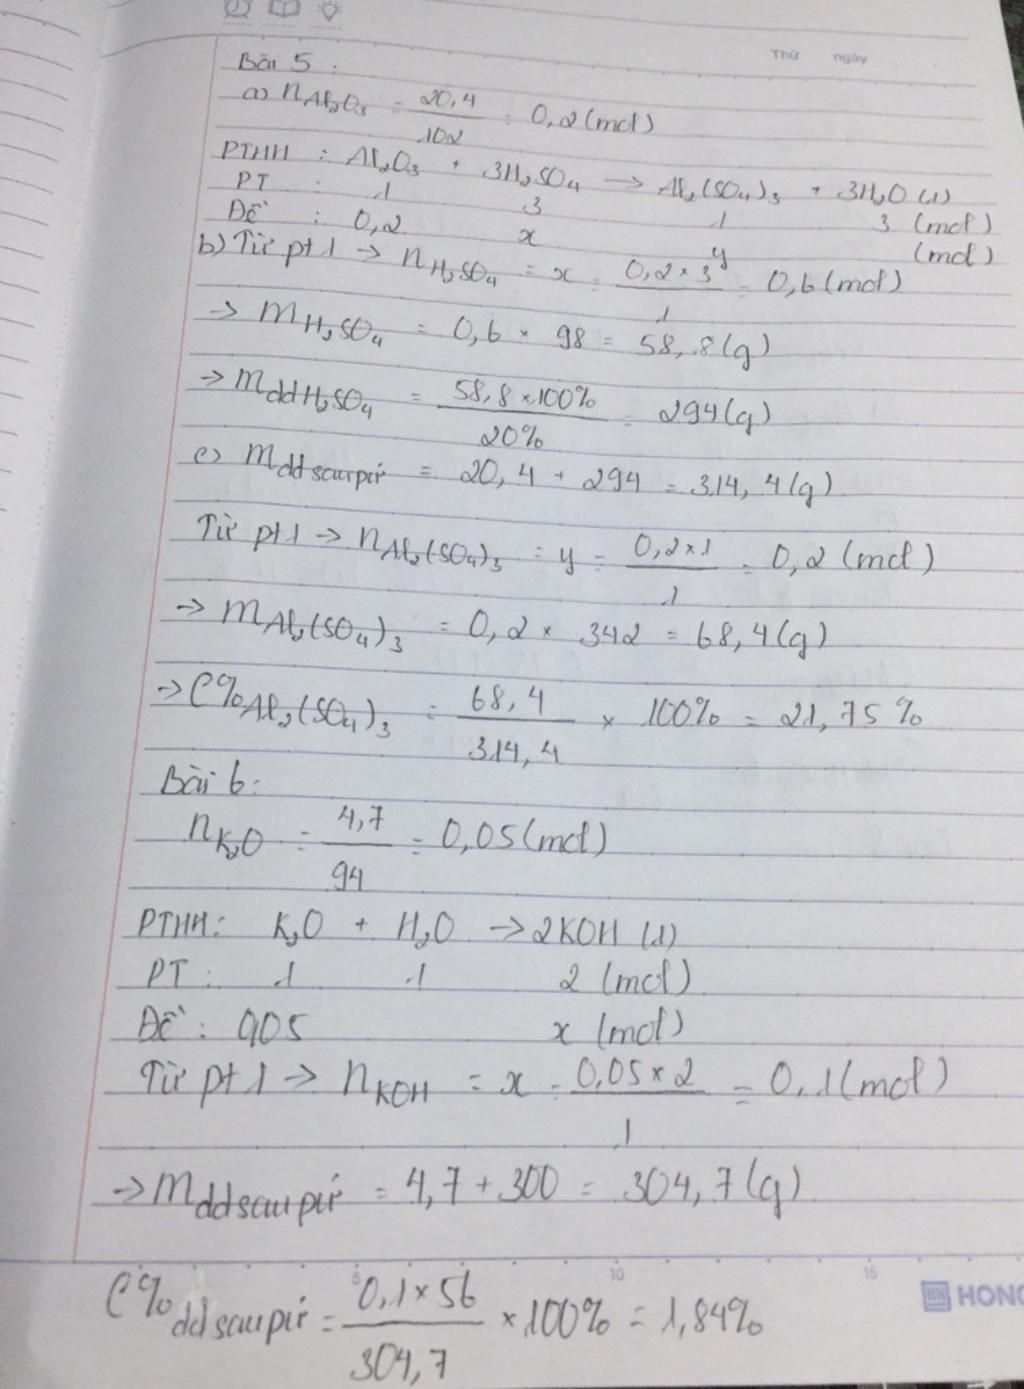 Thứ ngày
Bài 5:
a) nAl₂O₃ = 20,4/102 = 0,2 (mol)
PTHH : Al₂O₃ + 3H₂SO₄ → Al₂(SO₄)₃ + 3H₂O (1)
PT : 1 3 1 3 (mol)
Đề : 0,2 x y (mol)
b) Từ pt 1 → nH₂SO₄ = x = 0,2 × 3/1 = 0,6 (mol)
→ mH₂SO₄ = 0,6 × 98 = 58,8 (g)
→ mddH₂SO₄ = 58,8 × 100%/20% = 294 (g)
c) mdd sau pứ = 20,4 + 294 = 314,4 (g)
Từ pt 1 → nAl₂(SO₄)₃ = y = 0,2 × 1/1 = 0,2 (mol)
→ mAl₂(SO₄)₃ = 0,2 × 342 = 68,4 (g)
→ C%Al₂(SO₄)₃ = 68,4/314,4 × 100% = 21,75 %
Bài 6:
nK₂O = 4,7/94 = 0,05 (mol)
PTHH: K₂O + H₂O → 2KOH (1)
PT : 1 1 2 (mol)
Đề : 0,05 x (mol)
Từ pt 1 → nKOH = x = 0,05 × 2/1 = 0,1 (mol)
→ mdd sau pứ = 4,7 + 300 = 304,7 (g)
5 10 15
C% dd sau pứ = 0,1 × 56/304,7 × 100% = 1,84%
HONG